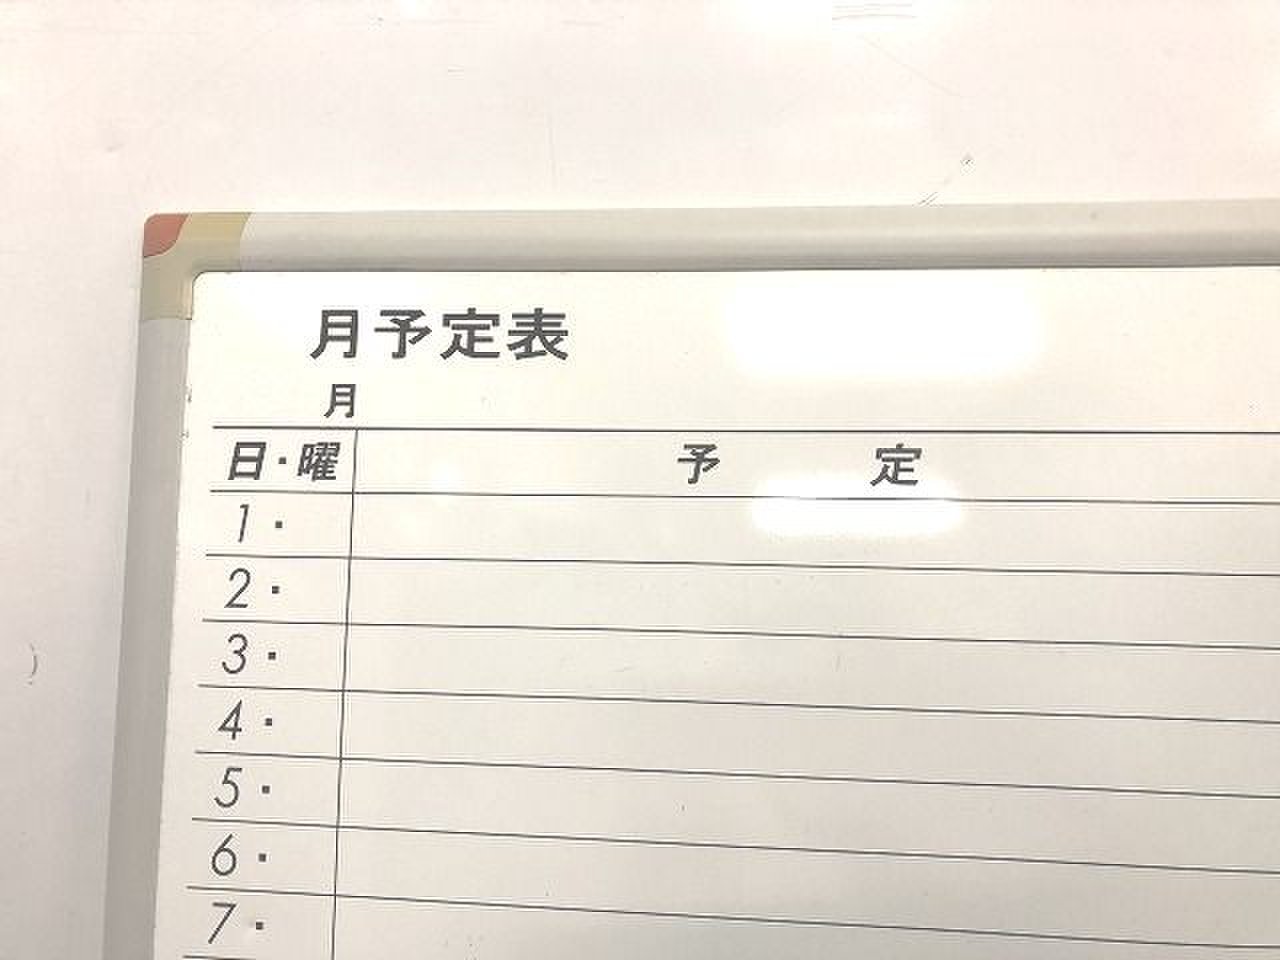 月予定表
月
日・曜 予定
1・
2・
3・
4・
5・
6・
7・